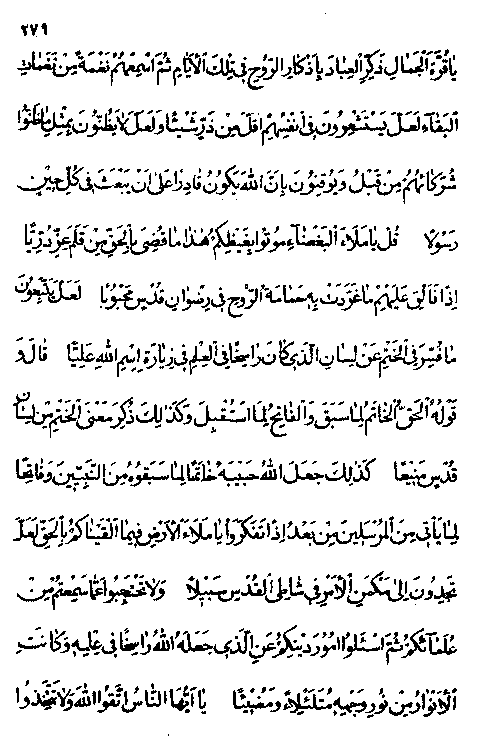 ٢٧٩
يا قرّة الجمال ذكّر العباد باذكار الرّوح فى تلك الأيّام ثمّ اسمعهم نغمة من نغمات
البقاء لعلّ يستشعرون فى انفسهم اقلّ من ذرّ شيئًا و لعلّ لا يظنّون بمثل ما ظنّوا
شركائهم من قبل و يوقنون بانّ الله يكون قادرا على ان يبعث فى كلّ حين
رسولا قل يا ملاء البغضاء موتوا بغيظكم هذا ما قضى بالحقّ من قلم عزّ درّيّا
اذًا فالق عليهم ما غرّدت به حمامة الرّوح فى رضوان قدس محبوبا لعلّ يتّبعون
ما فسّر فى الختم عن لسان الّذى كان راسخا فى العلم فى زيارة اسم الله عليّا قال و
قوله الحقّ الخاتم لما سبق و الفاتح لما استقبل و كذلك ذكر معنى الختم من لسان
قدس منيعا كذلك جعل الله حبيبه خاتما لما سبقوه من النّبيّين و فاتحا
لما يأتى من المرسلين من بعد اذًا تفكّروا يا ملاء الأرض فيما القيناكم بالحقّ لعلّ
تجدون الى مكمن الأمر فى شاطئ القدس سبيلا و لا تحتجبوا عمّا سمعتم من
علمائكم ثمّ اسئلوا امور دينكم عن الّذى جعله الله راسخا فى علمه و كانت
الأنوار من نور وجهه متلئلئا و مضيئا يا ايّها النّاس اتّقوا الله و لا تتّخذوا